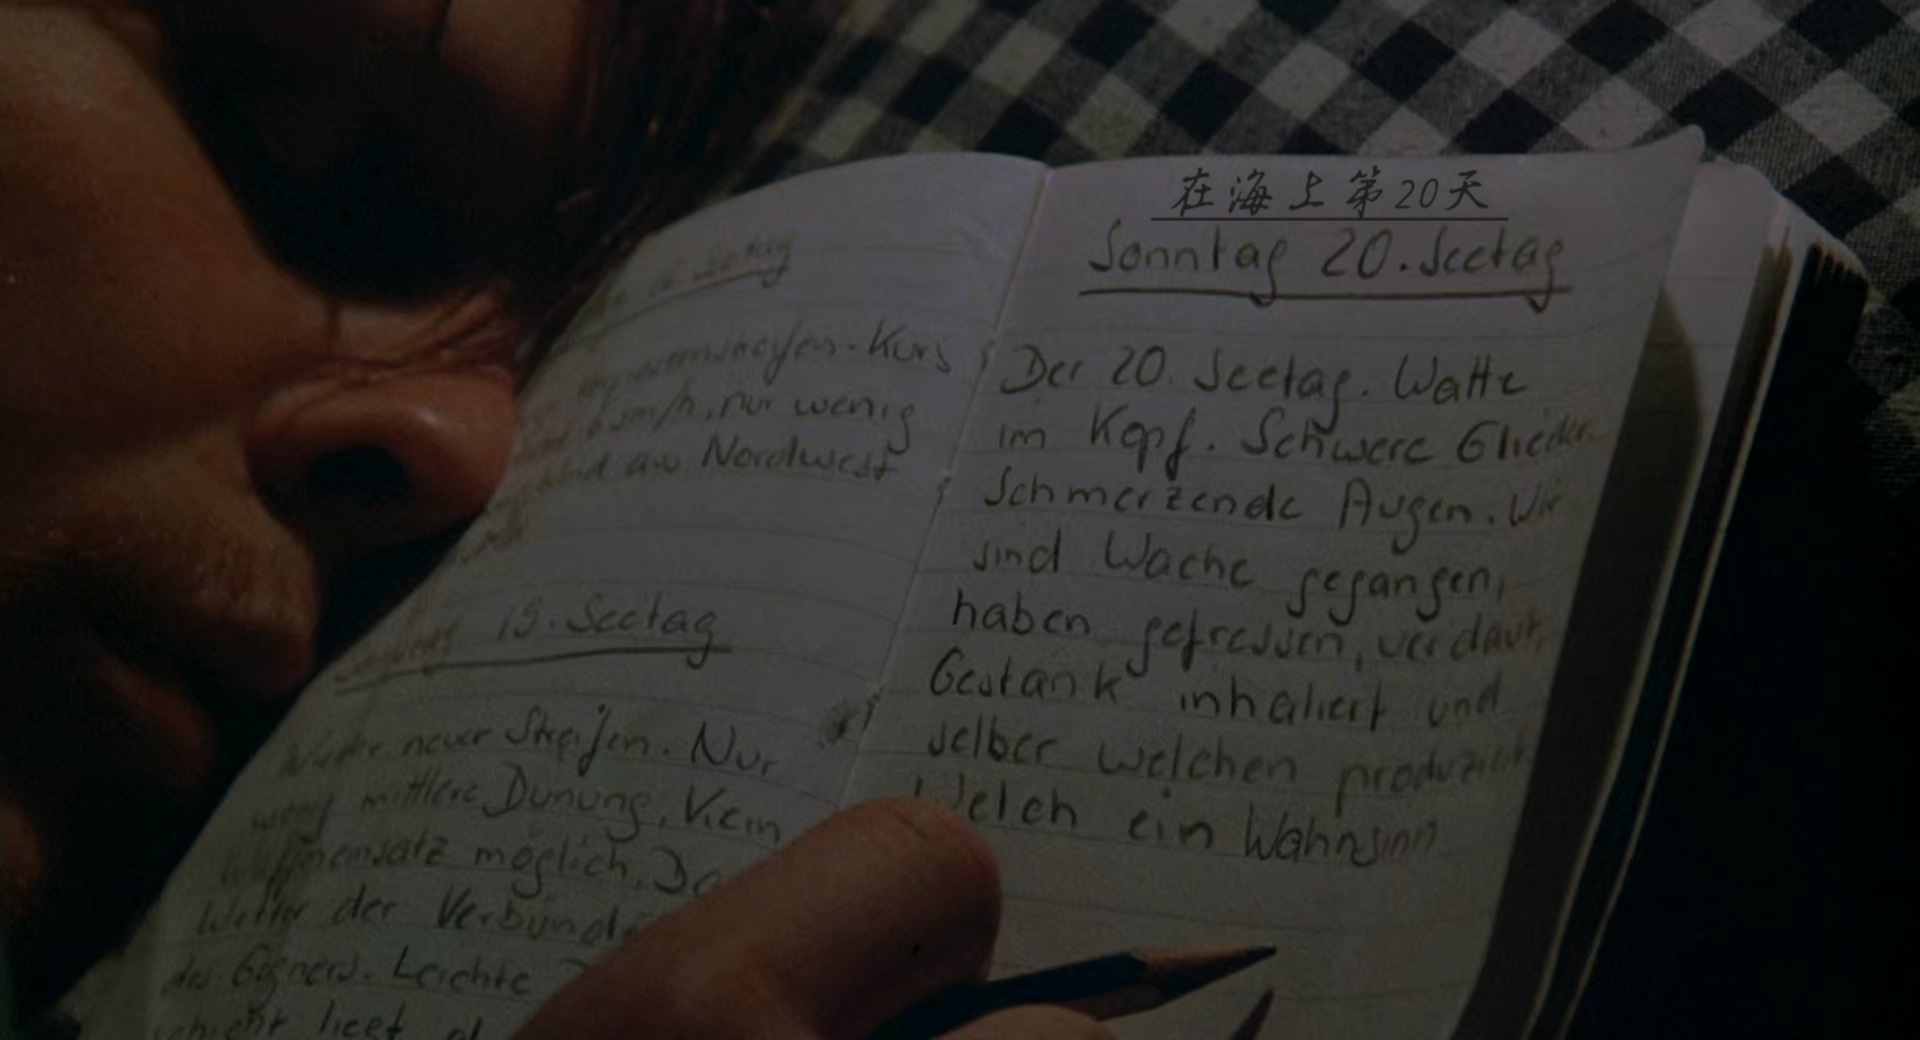 Seetag
Kurs
6 sm/h, nur wenig
aus Nordwest
19. Seetag
Wieder neuer Streifen. Nur
wenig mittlere Dünung, Kein
Waffeneinsatz möglich, Da
Wetter der Verbünde
des Gegners. Leichte
liegt
在海上第20天
Sonntag 20. Seetag
Der 20. Seetag. Watte
im Kopf. Schwere Glieder.
Schmerzende Augen. Wir
sind Wache gegangen,
haben gefressen, verdaut,
Gestank inhaliert und
selber welchen produziert
Welch ein Wahnsinn